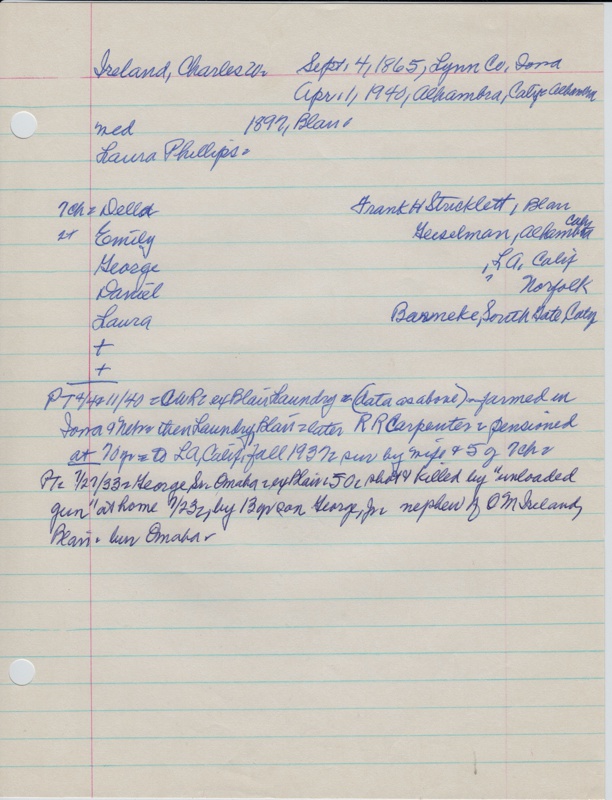 Ireland, Charles W= Sept. 4, 1865, Lynn Co, Iowa
Apr. 11, 1940, Alhambra, Calif= Alhambra
med 1897, Blair=
Laura Phillips=
7ch= Della Frank H Stricklett, Blair
2+ Emily Geiselman, Alhambra Calif
George , LA, Calif
Daniel " Norfolk
Laura Barmeke, South Gate Calif
+
+
PT 4/11/40 = CWR= ex Blair Laundry = (data as above) - farmed in
Iowa & Nebr= then Laundry, Blair= later R R Carpenter= pensioned
at 70 yr= to LA, Calif, fall 1937= sur by wife & 5 of 7ch=
PT= 7/27/33= George, Sr. Omaha= ex Blair= 50= shot & killed by "unloaded
gun" at home 7/23, by 13 yr son George, Jr= nephew of O M Ireland,
Blair= bur Omaha=